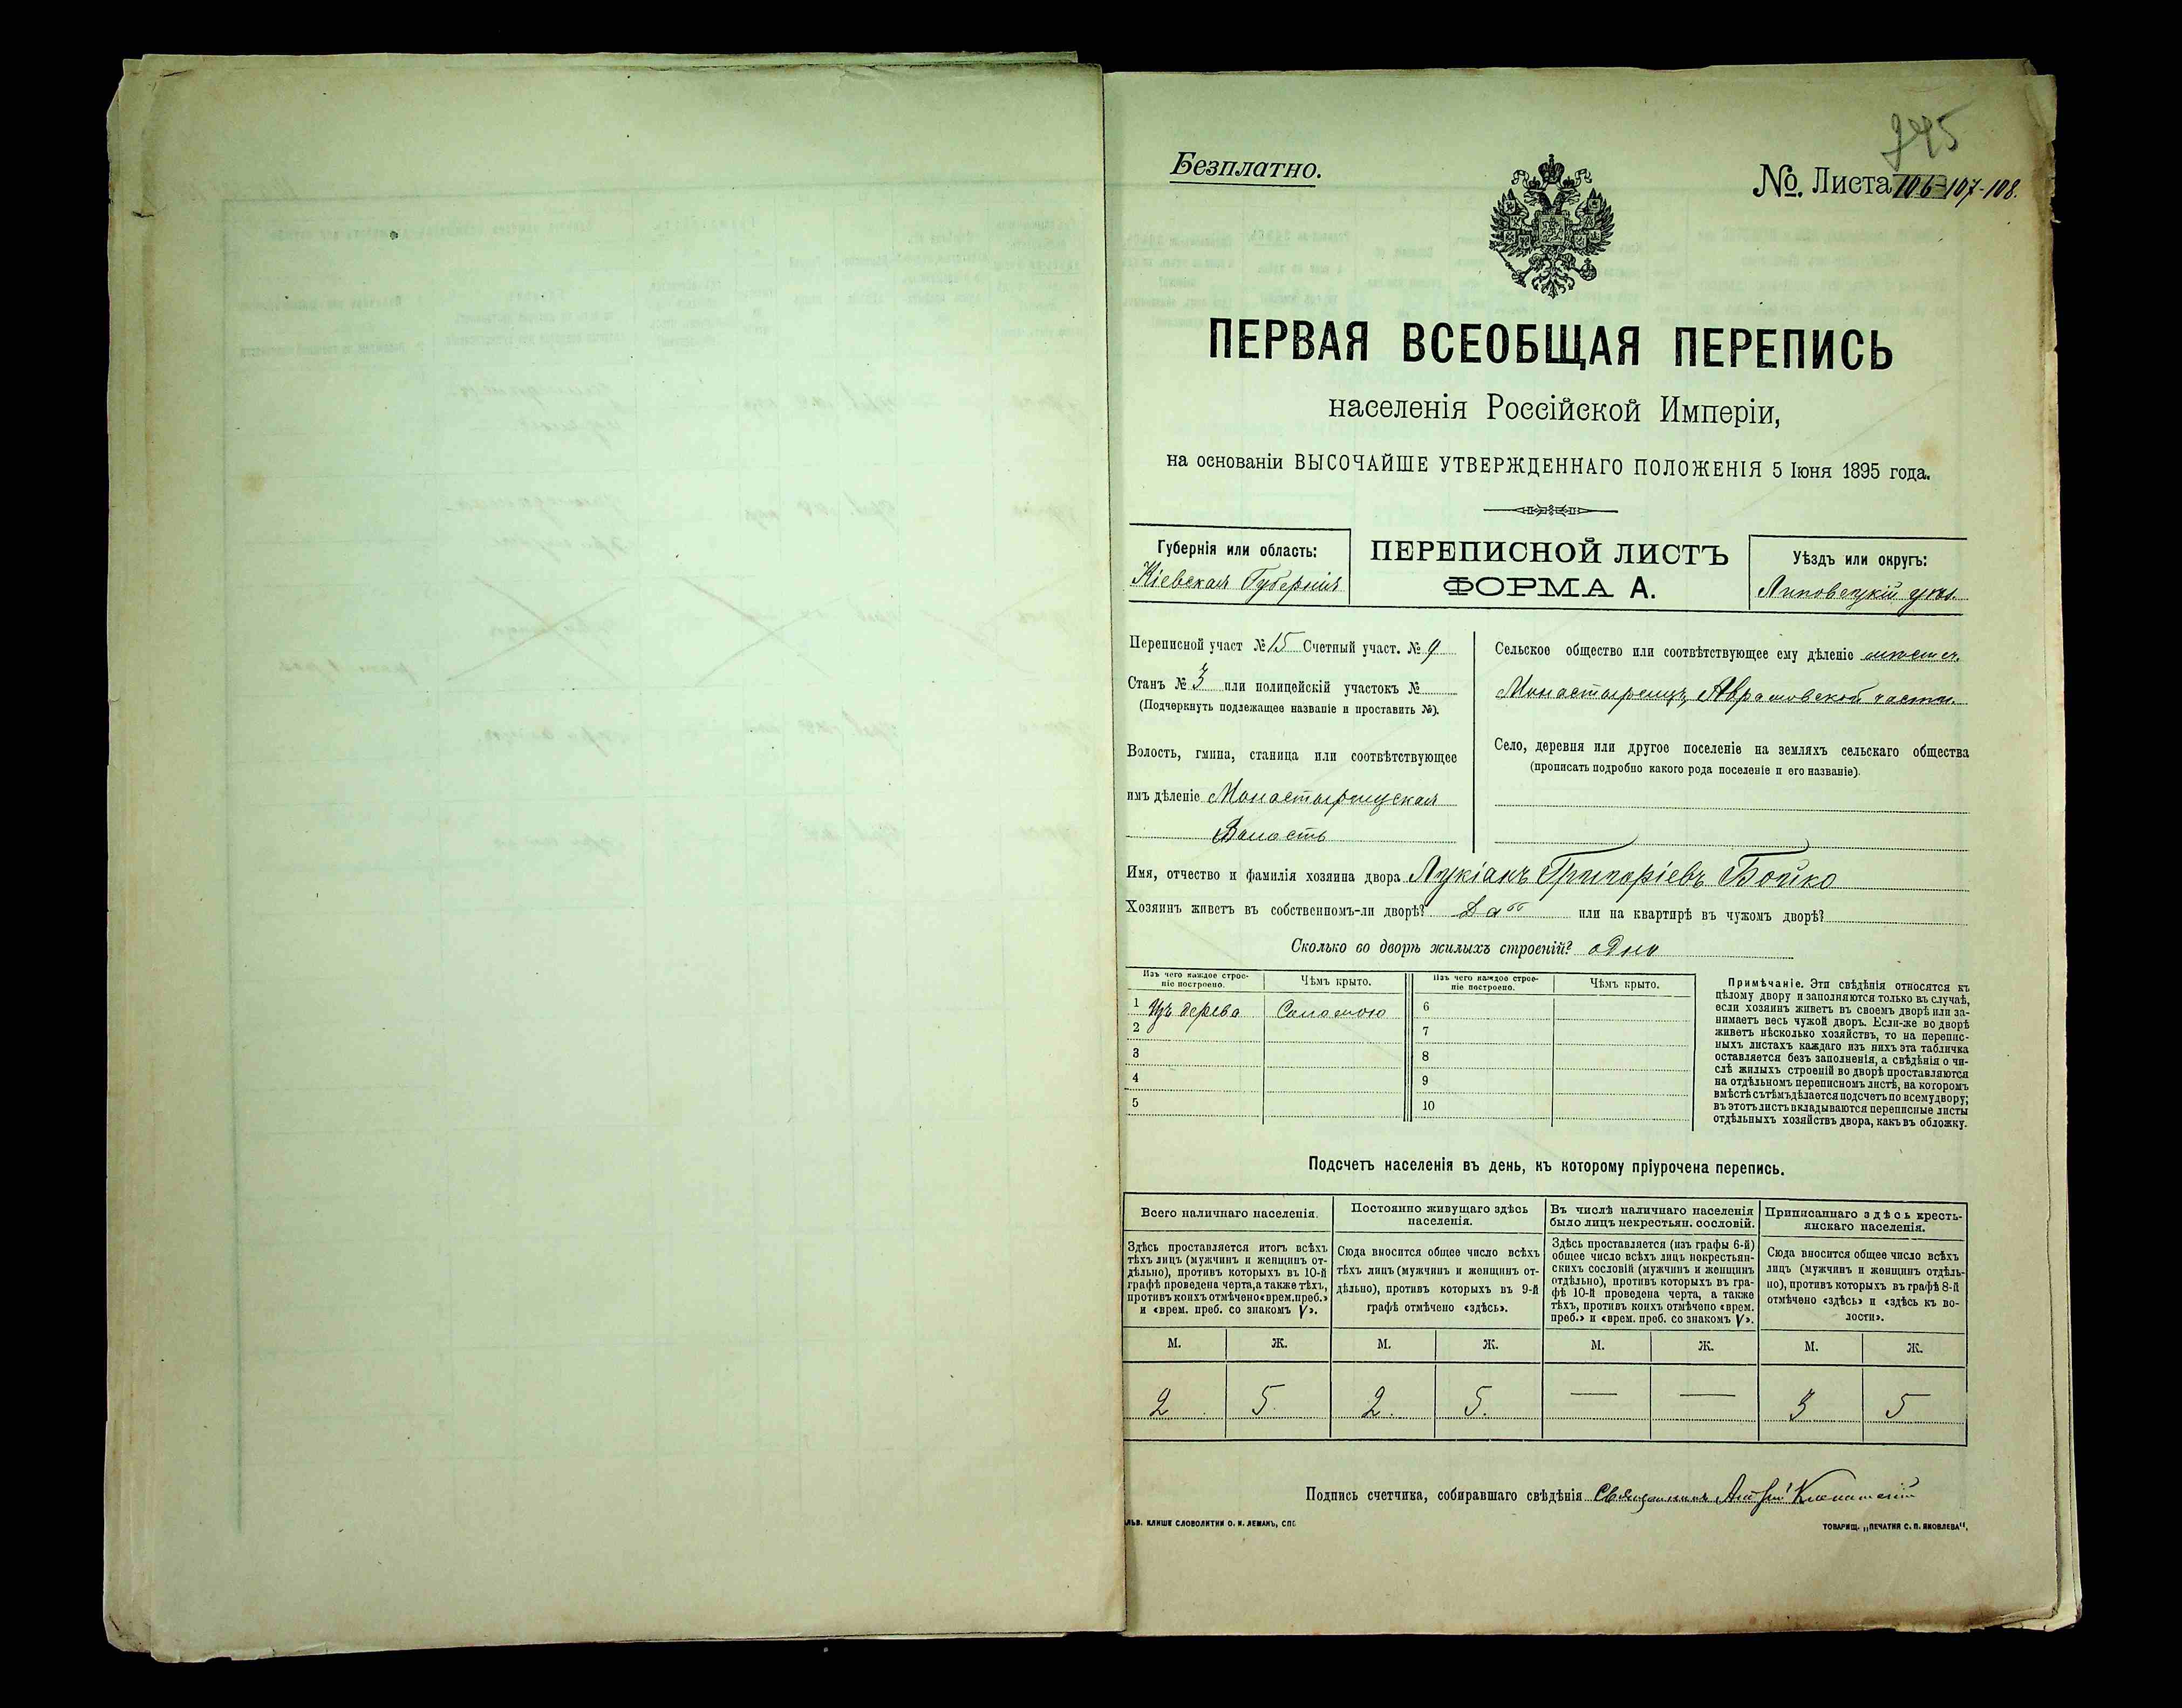 745
Безплатно.
№. Листа 106-107-108.
ПЕРВАЯ ВСЕОБЩАЯ ПЕРЕПИСЬ
населенія Россійской Имперіи,
на основаніи ВЫСОЧАЙШЕ УТВЕРЖДЕННАГО ПОЛОЖЕНІЯ 5 Іюня 1895 года.
Губернія или область:
Кіевская Губернія
ПЕРЕПИСНОЙ ЛИСТЪ
ФОРМА А.
Уѣздъ или округъ:
Липовецкій уѣз.
Переписной участ № 15 Счетный участ. № 9
Станъ № 3 или полицейскій участокъ №
(Подчеркнуть подлежащее названіе и проставить №).
Волость, гмина, станица или соотвѣтствующее
имъ дѣленіе Монастырищская
Волость
Сельское общество или соотвѣтствующее ему дѣленіе
Монастырищъ, Аврамовской части.
Село, деревня или другое поселеніе на земляхъ сельскаго общества
(прописать подробно какого рода поселеніе и его названіе).
Имя, отчество и фамилія хозяина двора Лукіанъ Григоріевъ Бойко
Хозяинъ живетъ въ собственномъ-ли дворѣ? Да или на квартирѣ въ чужомъ дворѣ?
Сколько во дворѣ жилыхъ строеній? одно
Изъ чего каждое строе-
ніе построено.
Чѣмъ крыто.
Изъ чего каждое строе-
ніе построено.
Чѣмъ крыто.
1 Изъ дерева Соломою 6
2 7
3 8
4 9
5 10
Примѣчаніе. Эти свѣдѣнія относятся къ
цѣлому двору и заполняются только въ случаѣ,
если хозяинъ живетъ въ своемъ дворѣ или за-
нимаетъ весь чужой дворъ. Если-же во дворѣ
живетъ нѣсколько хозяйствъ, то на перепис-
ныхъ листахъ каждаго изъ нихъ эта табличка
оставляется безъ заполненія, а свѣдѣнія о чи-
слѣ жилыхъ строеній во дворѣ проставляются
на отдѣльномъ переписномъ листѣ, на которомъ
вмѣстѣ съ тѣмъ дѣлается подсчетъ по всему двору;
въ этотъ листъ вкладываются переписные листы
отдѣльныхъ хозяйствъ двора, какъ въ обложку.
Подсчетъ населенія въ день, къ которому пріурочена перепись.
Всего наличнаго населенія.
Здѣсь проставляется итогъ всѣхъ
тѣхъ лицъ (мужчинъ и женщинъ от-
дѣльно), противъ которыхъ въ 10-й
графѣ проведена черта, а также тѣхъ,
противъ коихъ отмѣчено «врем. преб.»
и «врем. преб. со знакомъ V».
Постоянно живущаго здѣсь
населенія.
Сюда вносится общее число всѣхъ
тѣхъ лицъ (мужчинъ и женщинъ от-
дѣльно), противъ которыхъ въ 9-й
графѣ отмѣчено «здѣсь».
Въ числѣ наличнаго населенія
было лицъ некрестьян. сословій.
Здѣсь проставляется (изъ графы 6-й)
общее число всѣхъ лицъ некрестьян-
скихъ сословій (мужчинъ и женщинъ
отдѣльно), противъ которыхъ въ гра-
фѣ 10-й проведена черта, а также
тѣхъ, противъ коихъ отмѣчено «врем.
преб.» и «врем. преб. со знакомъ V».
Приписаннаго здѣсь кресть-
янскаго населенія.
Сюда вносится общее число всѣхъ
лицъ (мужчинъ и женщинъ отдѣль-
но), противъ которыхъ въ графѣ 8-й
отмѣчено «здѣсь» и «здѣсь къ во-
лости».
М. Ж. М. Ж. М. Ж. М. Ж.
2 5. 2. 5. — — 3 5
Подпись счетчика, собиравшаго свѣдѣнія Священникъ
ТОВАРИЩ. „ПЕЧАТНЯ С. П. ЯКОВЛЕВА“,
ЛЬВ. КЛИШЕ СЛОВОЛИТНИ О. И. ЛЕМАНЪ, СПБ